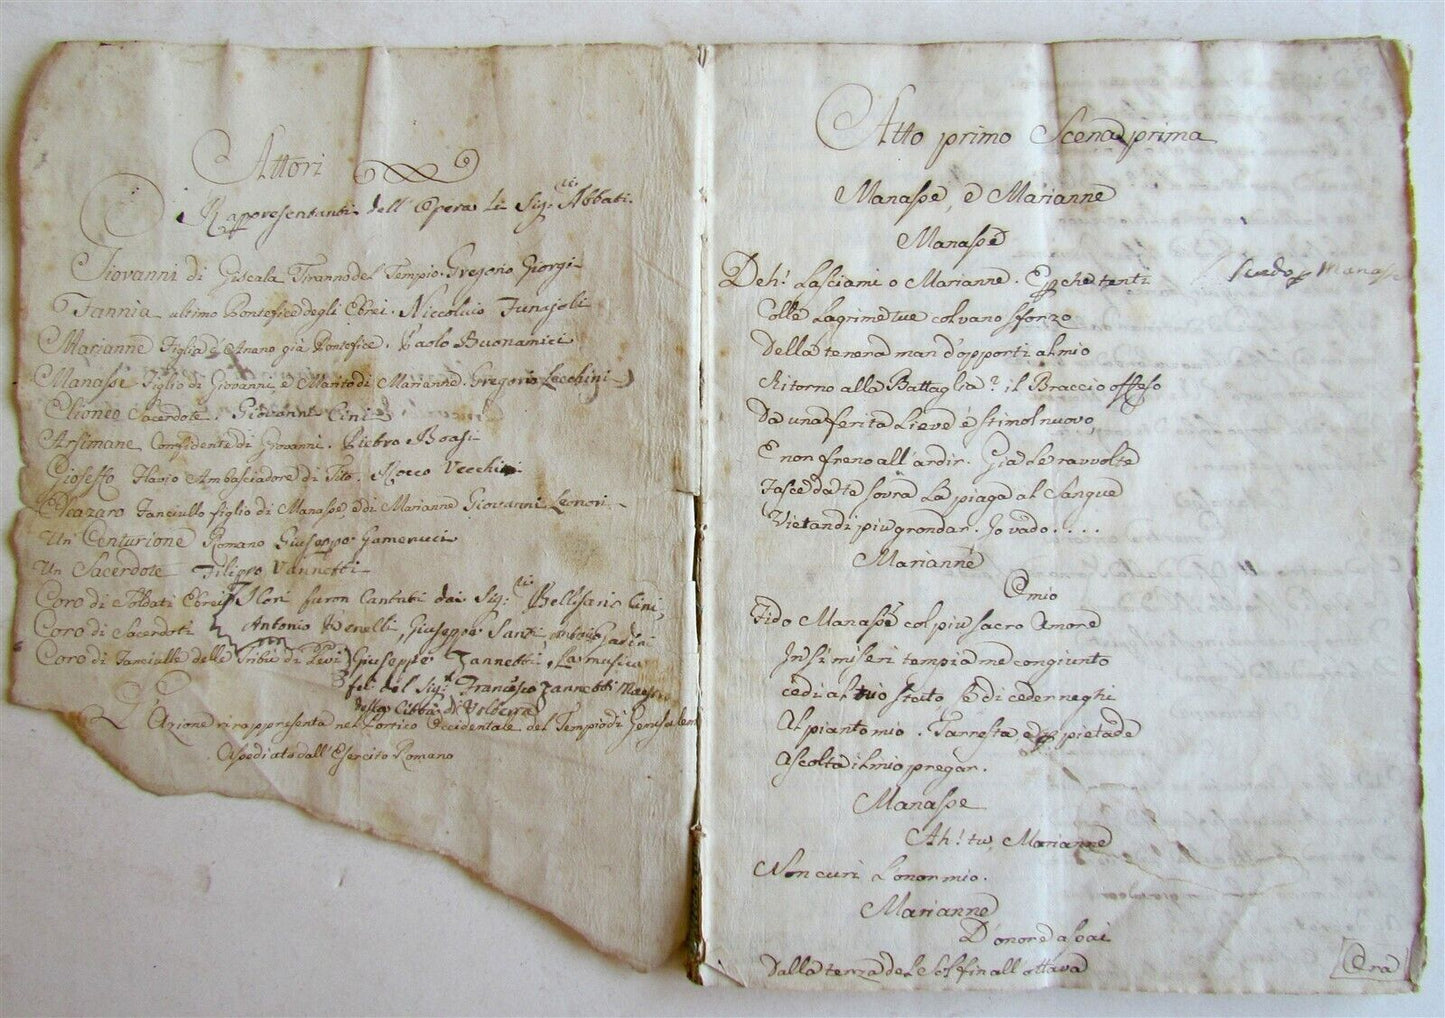 Attori
Rappresentanti dell' Opera Li Sig:ri Abbati.
Giovanni di Giscala Tiranno del Tempio. Gregorio Giorgi
Fannia ultimo Pontefice degli Ebrei. Niccoluio Funajoli
Marianne Figlia d'Anano già Pontefice. Paolo Buonamici
Manasse Figlio di Giovanni, e Marito di Marianne. Gregorio Lecchini
Elioneo Sacerdote. Giovanni Cini
Arsimane Confidente di Giovanni. Pietro Boasi
Gioseffo Flavio Ambasciadore di Tito. Rocco Vecchini
Eleazaro Fanciullo figlio di Manasse, e di Marianne Giovanni Leonori
Un Centurione Romano Giuseppe Gamerucci
Un Sacerdote Filippo Vannetti
Coro di Soldati Ebrei I Cori furon Cantati dai Sig:ri Bellisario Cini,
Coro di Sacerdoti Antonio Venelli, Giuseppe Santi,
Coro di Fanciulle della Tribù di Levi Giuseppe Zannetti, La musica
fu del Sig:r Francesco Zannetti Maestro
della Città di Volterra
L'Azione si rappresenta nel Portico Occidentale del Tempio di Gerusalem
Assediata dall'Esercito Romano
Atto primo Scena prima
Manasse, e Marianne
Manasse
Deh! Lasciami o Marianne. E perchè tenti
Scudo p Manasse
Colle Lagrime tue col vano sforzo
Della tenera man d'opporti al mio
Ritorno alla Battaglia? il Braccio offeso
Da una ferita Lieve è stimol nuovo,
E non freno all'ardir. Già Le ravvolte
Fasce da te sovra La piaga al Sangue
Vietan di più grondar. Io vado....
Marianne
O mio
Fido Manasse col più sacro Amore
In sì miseri tempi a me congiunto
cedi al tuo stato, se di ceder neghi
Al pianto mio. T'arresta e p pietade
Ascolta il mio pregar.
Manasse
Ah! tu, Marianne
Non curi L'onor mio.
Marianne
D'onore assai
Dalla terza del Sol fin all'ottava
Ora